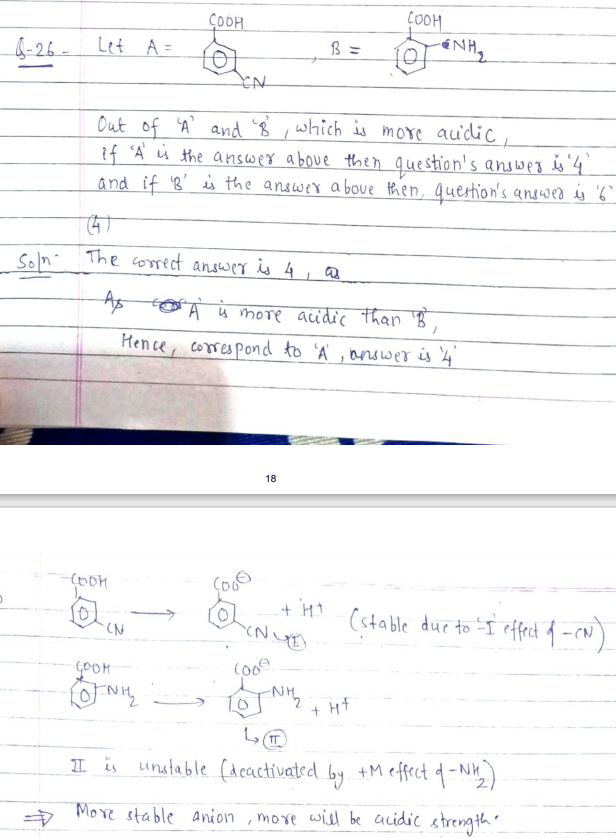 Q-26- Let A = COOH CN , B = COOH NH2
Out of 'A' and 'B', which is more acidic,
if 'A' is the answer above then question's answer is '4'
and if 'B' is the answer above then, question's answer is '6'
(4)
Soln- The correct answer is 4, as
As 'A' is more acidic than 'B',
Hence, correspond to 'A', answer is '4'
18
COOH CN → COO⊖ CN → I + H+ (stable due to '-I' effect of -CN)
COOH NH2 → COO⊖ NH2 + H+
↳ II
II is unstable (deactivated by +M effect of -NH2)
⇒ More stable anion, more will be acidic strength.